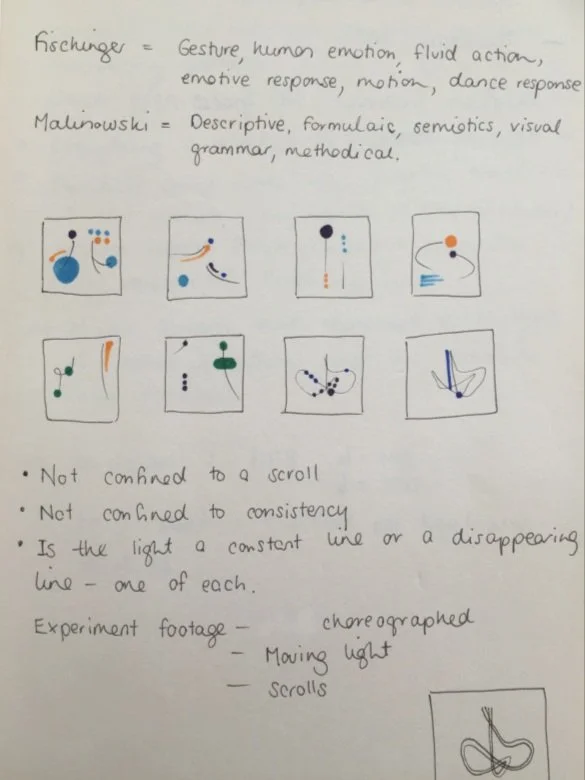 Fischinger = Gesture, human emotion, fluid action,
emotive response, motion, dance response
Malinowski = Descriptive, formulaic, semiotics, visual
grammar, methodical.
• Not confined to a scroll
• Not confined to consistency
• Is the light a constant line or a disappearing
line – one of each.
Experiment footage – choreographed
– Moving light
– Scrolls